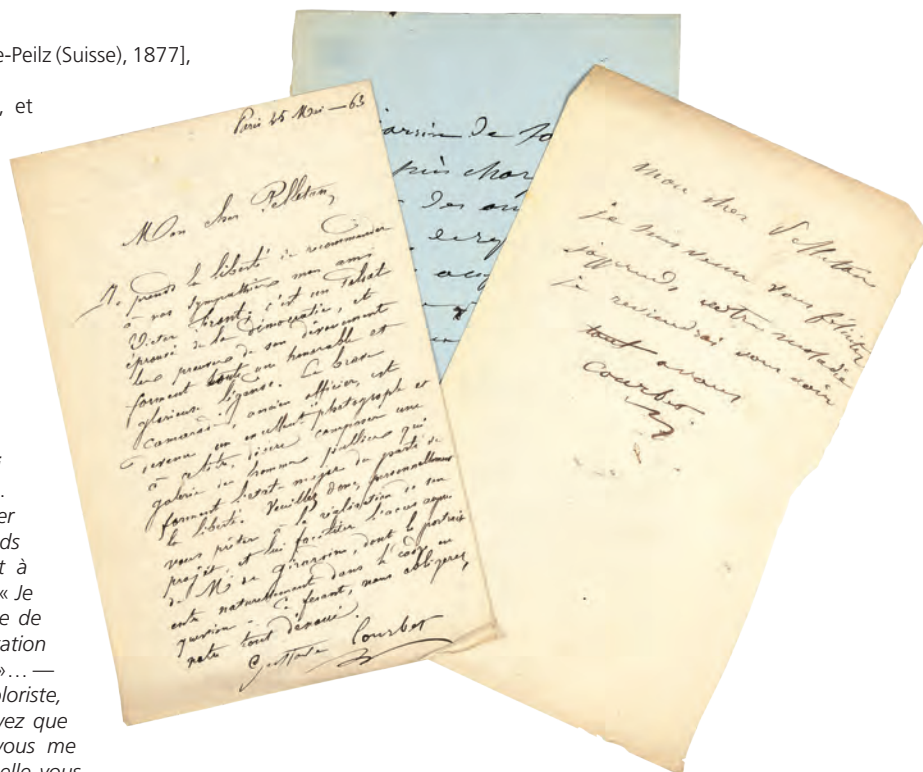 e-Peilz (Suisse), 1877],
, et
.
er
ds
t à
« Je
e de
ation
»… —
loriste,
vez que
vous me
elle vous
Paris 25 Mai — 63
Mon cher Pelletan,
Je prends la liberté de recommander
à vos sympathies mon ami
Victor Frond; c'est un soldat
éprouvé de la démocratie, et
les preuves de son dévouement
forment toute une honorable et
glorieuse légende. Ce brave
camarade, ancien officier, est
devenu un excellent photographe et
à ce titre, désire composer une
galerie des hommes publics qui
forment l'état-major du parti de
la liberté. Veuillez donc, personnellement
vous prêter à la réalisation de son
projet, et lui faciliter l'accès auprès
de Mr de Girardin, dont le portrait
entre naturellement dans le cadre en
question. Ce faisant, vous obligerez
votre tout dévoué.
Gustave Courbet
de
mon cher Pelletan
je suis venu vous féliciter
j'apprends votre maladie
je reviendrai vous voir
tout à vous
Courbet.